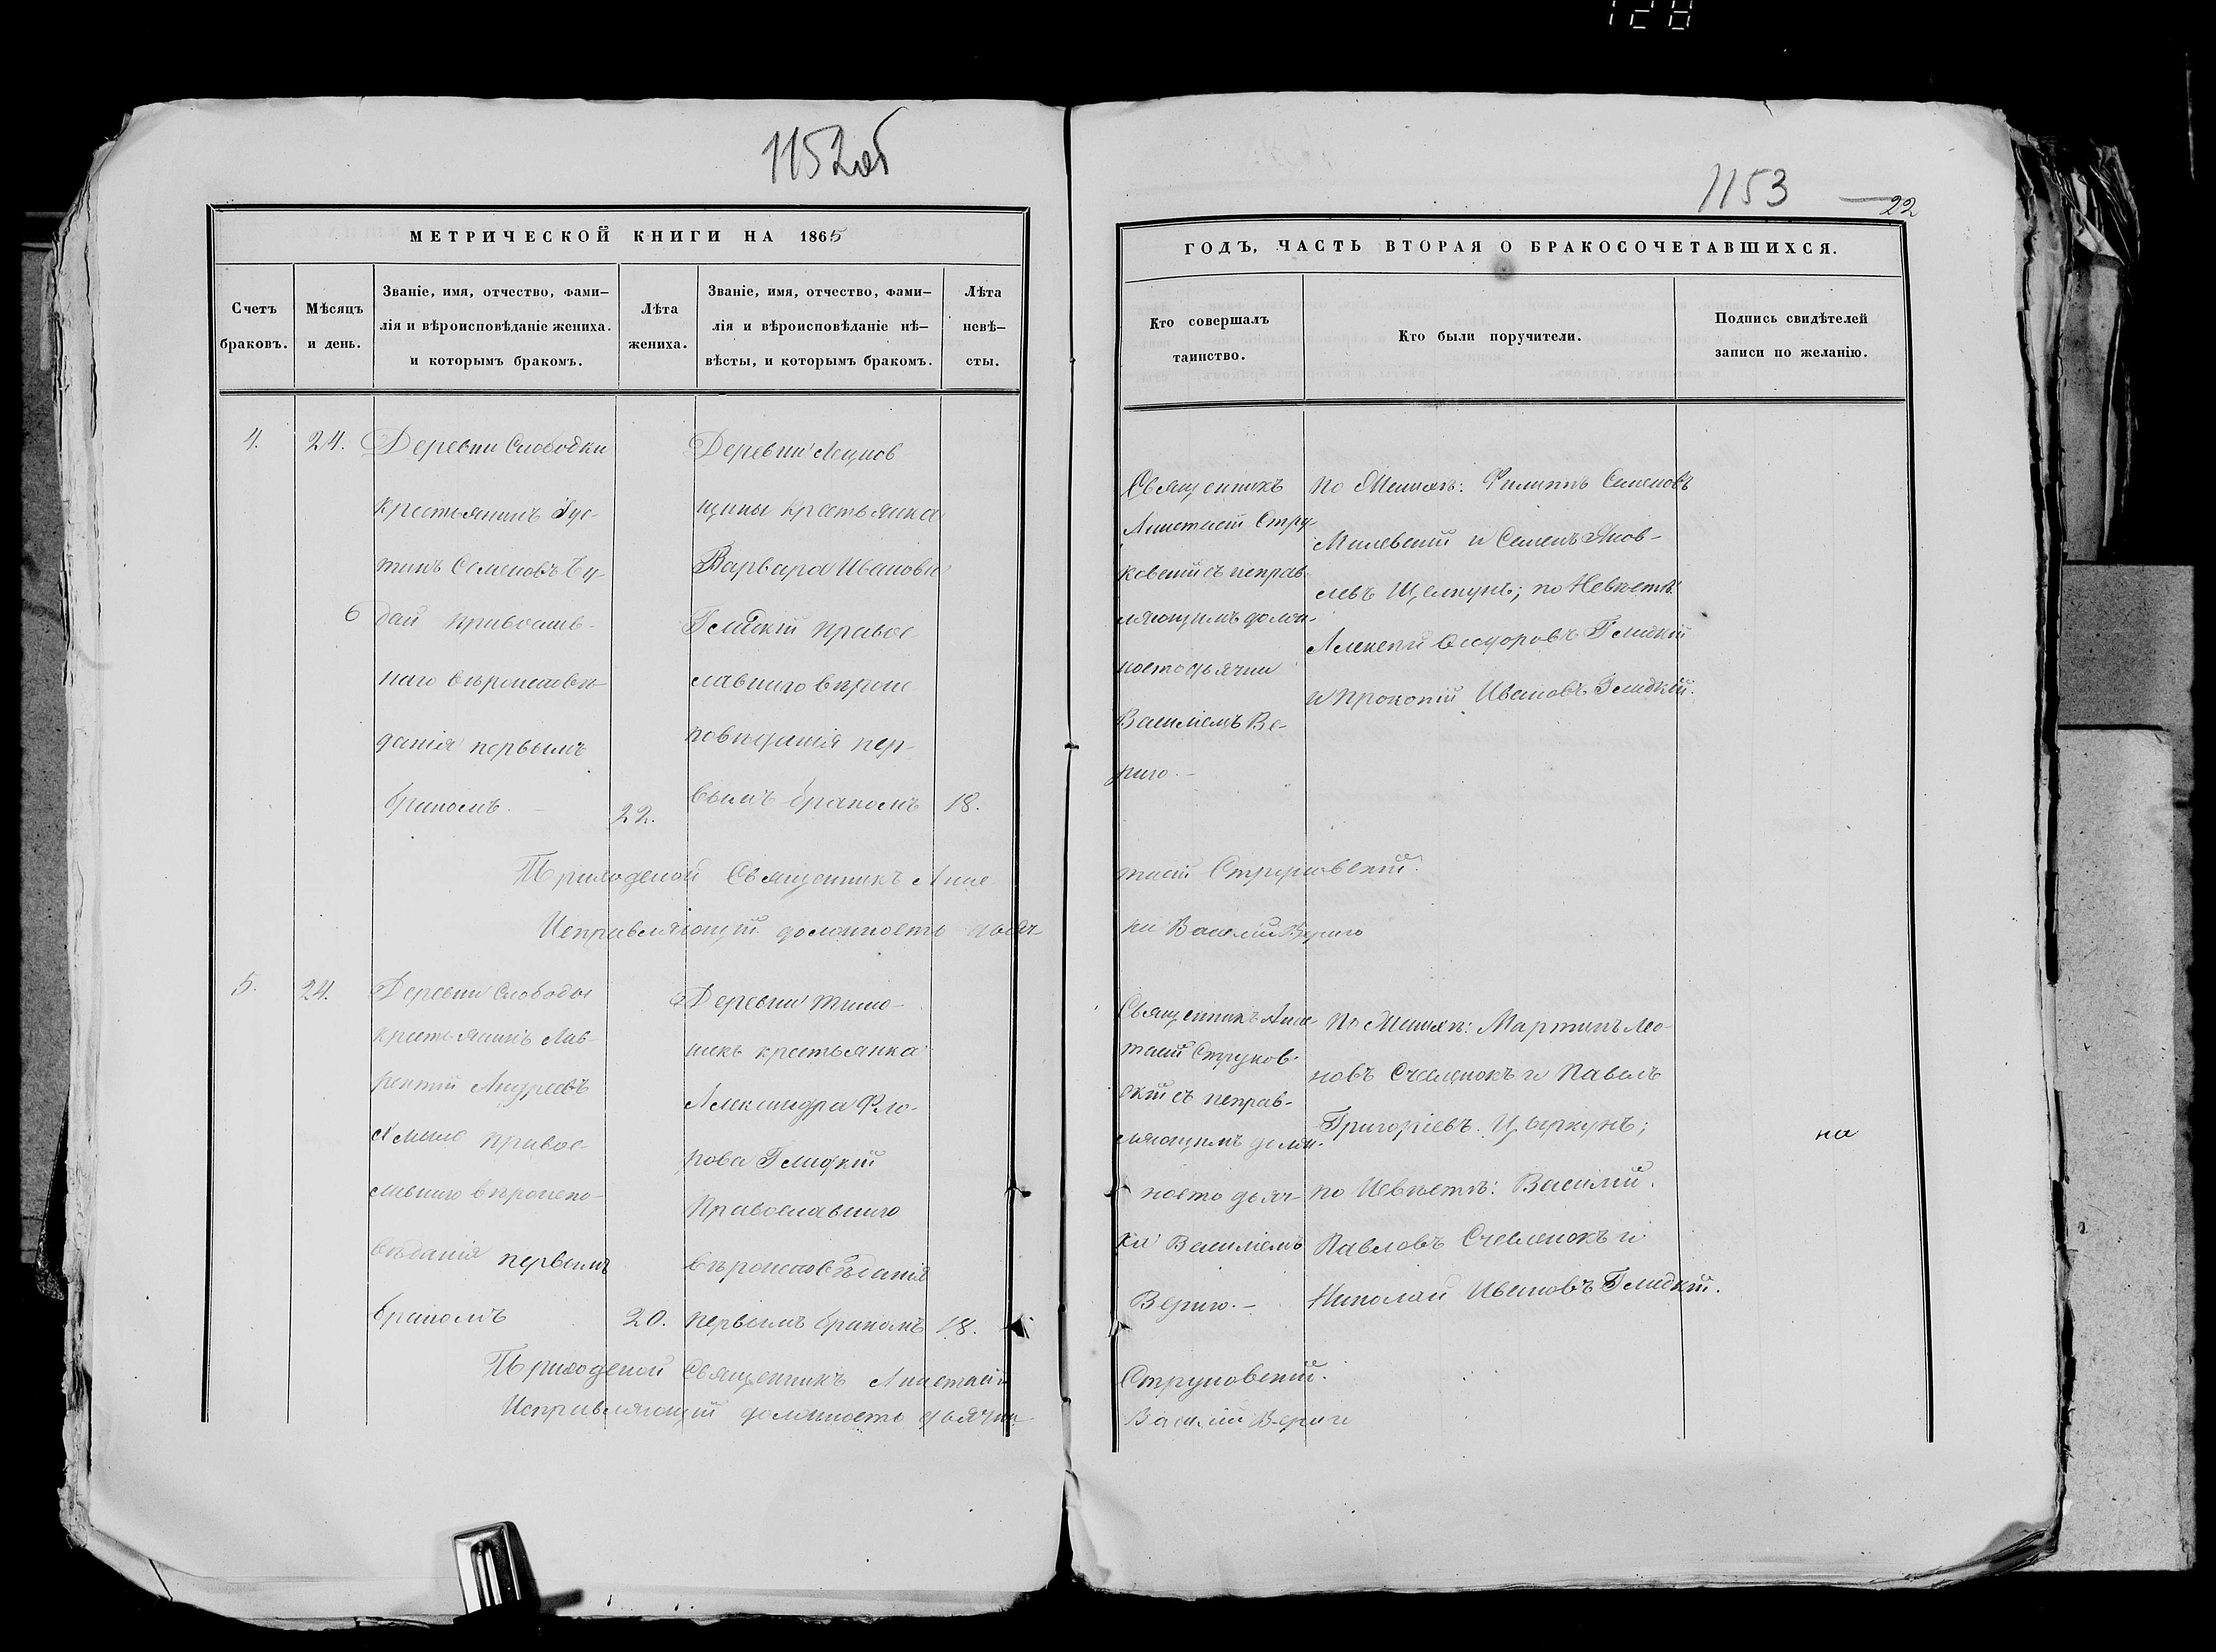 128
1152об
МЕТРИЧЕСКОЙ КНИГИ НА 1865
Счетъ браковъ.
Мѣсяцъ и день.
Званіе, имя, отчество, фами–
лія и вѣроисповѣданіе жениха.
и которымъ бракомъ.
Лѣта жениха.
Званіе, имя, отчество, фами–
лія и вѣроисповѣданіе нѣ–
вѣсты, и которымъ бракомъ.
Лѣта невѣ–
сты.
4.
24.
Деревни Слободки
крестьянинъ Іус-
тинъ Семеновъ
православ-
наго вѣроисповѣ-
данія первымъ
бракомъ.
22.
Деревни
щины крестьянка
Варвара Иванова
Гладкій правос-
лавнаго вѣроис
повѣданія пер-
вымъ бракомъ
18.
Приходской Священникъ Анас
Исправляющій должность дьяч-
5.
24.
Деревни Слободы
крестьянинъ Лав-
рентій Андреевъ
правос-
лавнаго вѣроиспо-
вѣданія первымъ
бракомъ
20.
Деревни Тимо-
шекъ крестьянка
Александра Фло-
рова Гладкій
Православнаго
вѣроисповѣданія
первымъ бракомъ
18.
Приходской Священникъ Анастасій
Исправляющій должность дьячка
1153
22
ГОДЪ, ЧАСТЬ ВТОРАЯ О БРАКОСОЧЕТАВШИХСЯ.
Кто совершалъ таинство.
Кто были поручители.
Подпись свидѣтелей
записи по желанію.
Священникъ
Анастасій Стру-
ковскій съ исправ-
ляющимъ долж-
ность дьячка
Василіемъ Ве-
риго.–
по Женихѣ: Филиппъ Семеновъ
Милевскій и Семенъ Яков-
левъ Щелкунъ; по Невѣстѣ:
Алексѣй Ѳедоровъ Гладкій
и Прокопій Ивановъ Гладкій.
тасій Струковскій.
ка Василій Вериго
Священникъ Анас-
тасій Струков-
скій съ исправ-
ляющимъ долж-
ность дьяч-
ка Василіемъ
Вериго.–
По Женихѣ: Мартинъ Лео-
новъ Счеленокъ и Павелъ
Григоріевъ Цыркунъ;
по Невѣстѣ: Василій
Павловъ Счеленокъ и
Николай Ивановъ Гладкій.
на
Струковскій.
Василій Вериго